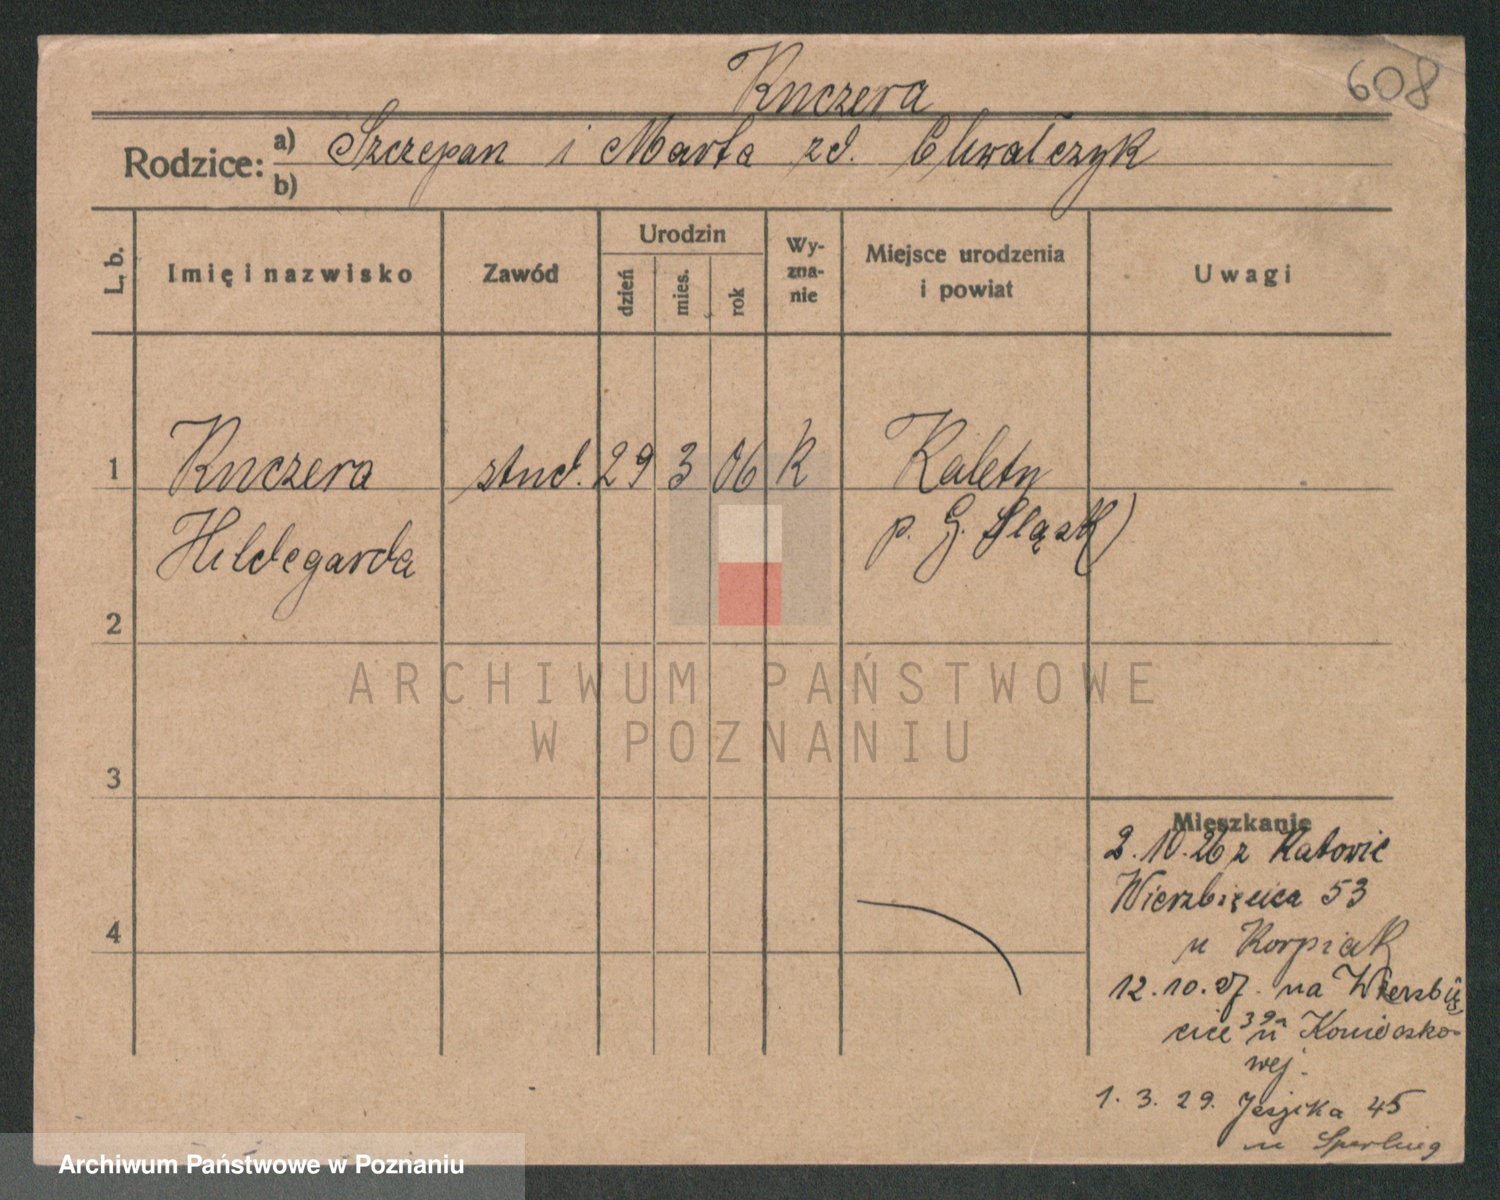 Kuczera
608
Rodzice: a) Szczepan i Marta zd. Chwalczyk
b)
L. b.
Imię i nazwisko
Zawód
Urodzin
dzień
mies.
rok
Wy-
zna-
nie
Miejsce urodzenia
i powiat
Uwagi
1 Kuczera stud. 29 3 06 K Kalety
Hildegarda p. G. Sląsk)
2
3
4
ARCHIWUM PAŃSTWOWE
W POZNANIU
Mieszkanie
2.10.26 z Katowic
Wierzbięcice 53
u Korpiak
12.10.27. na Wierzbię
cice 39a u
wej.
1. 3. 29. 45
u Sperling
Archiwum Państwowe w Poznaniu